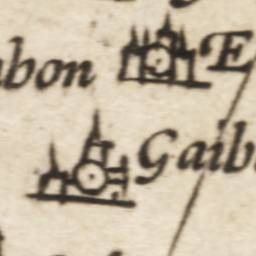 bon E
Gaib